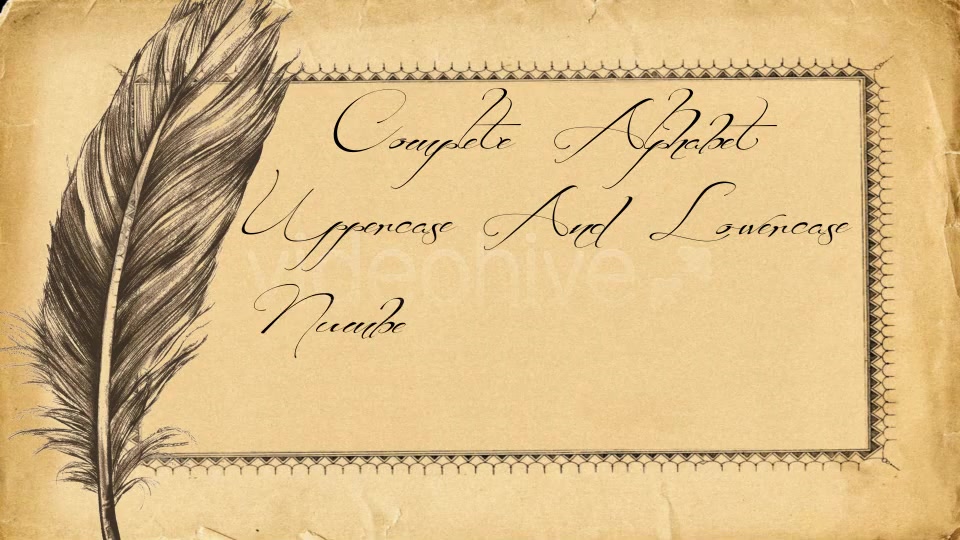 Complete Alphabet
Uppercase And Lowercase
videohive
Numbe